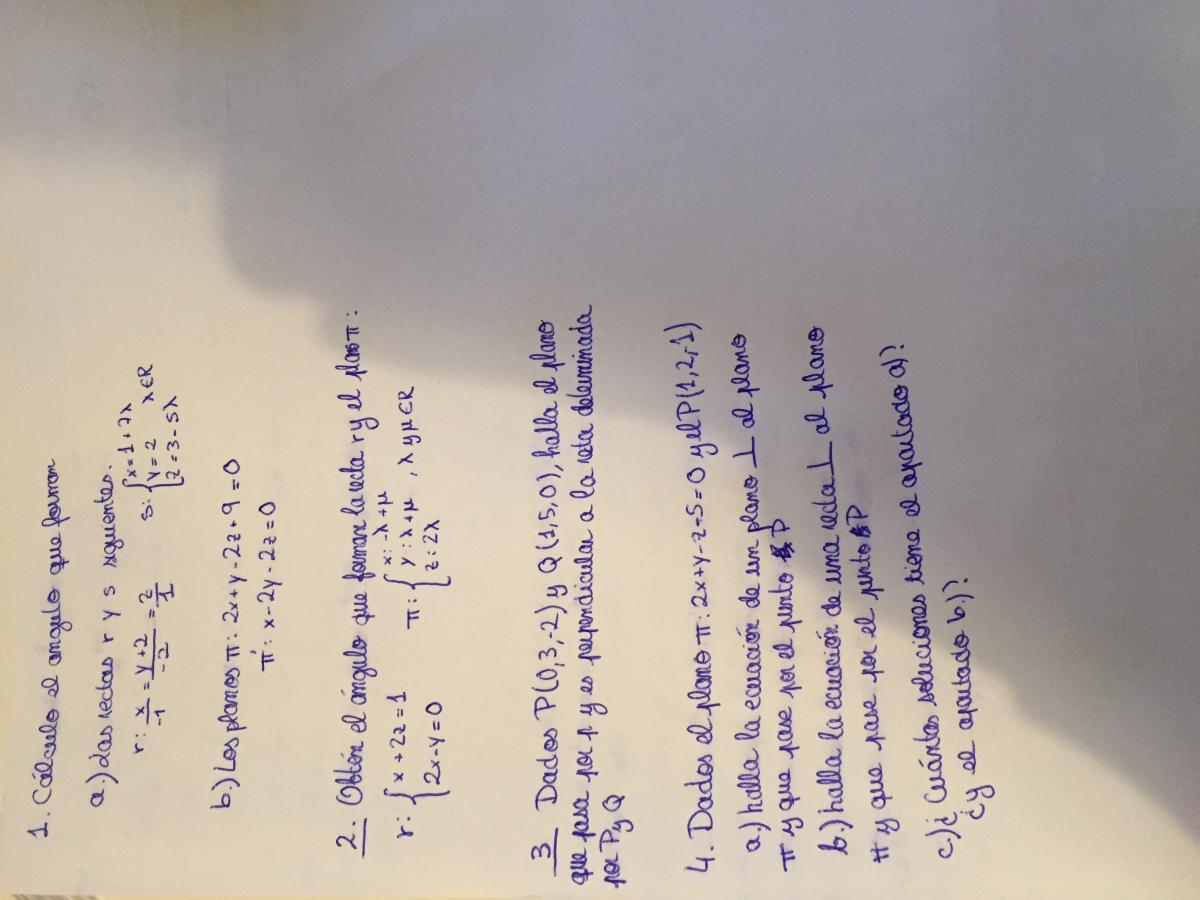 1. Cálculo el ángulo que forman
a.) Las rectas r y s siguientes.
r: x/-1 = y+2/-2 = z/1 s: { x=1+7λ y=2 z=3-5λ λ∈R
b.) Los planos π: 2x+y-2z+9=0
π': x-2y-2z=0
2. Obtén el ángulo que forman la recta r y el plano π:
r: { x+2z=1 2x-y=0 π: { x:-λ+μ y:λ+μ z:2λ , λ y μ∈R
3 Dados P(0,3,-2) y Q(1,5,0), halla el plano
que pasa por p y es perpendicular a la reta determinada
por P y Q
4. Dados el plano π: 2x+y-z-5=0 y el P(1,2,-1)
a.) halla la ecuación de un plano ⊥ al plano
π y que pase por el punto P
b.) halla la ecuación de una recta ⊥ al plano
π y que pase por el punto P
c.) ¿Cuántas soluciones tiene el apartado a)?
¿y el apartado b.)?